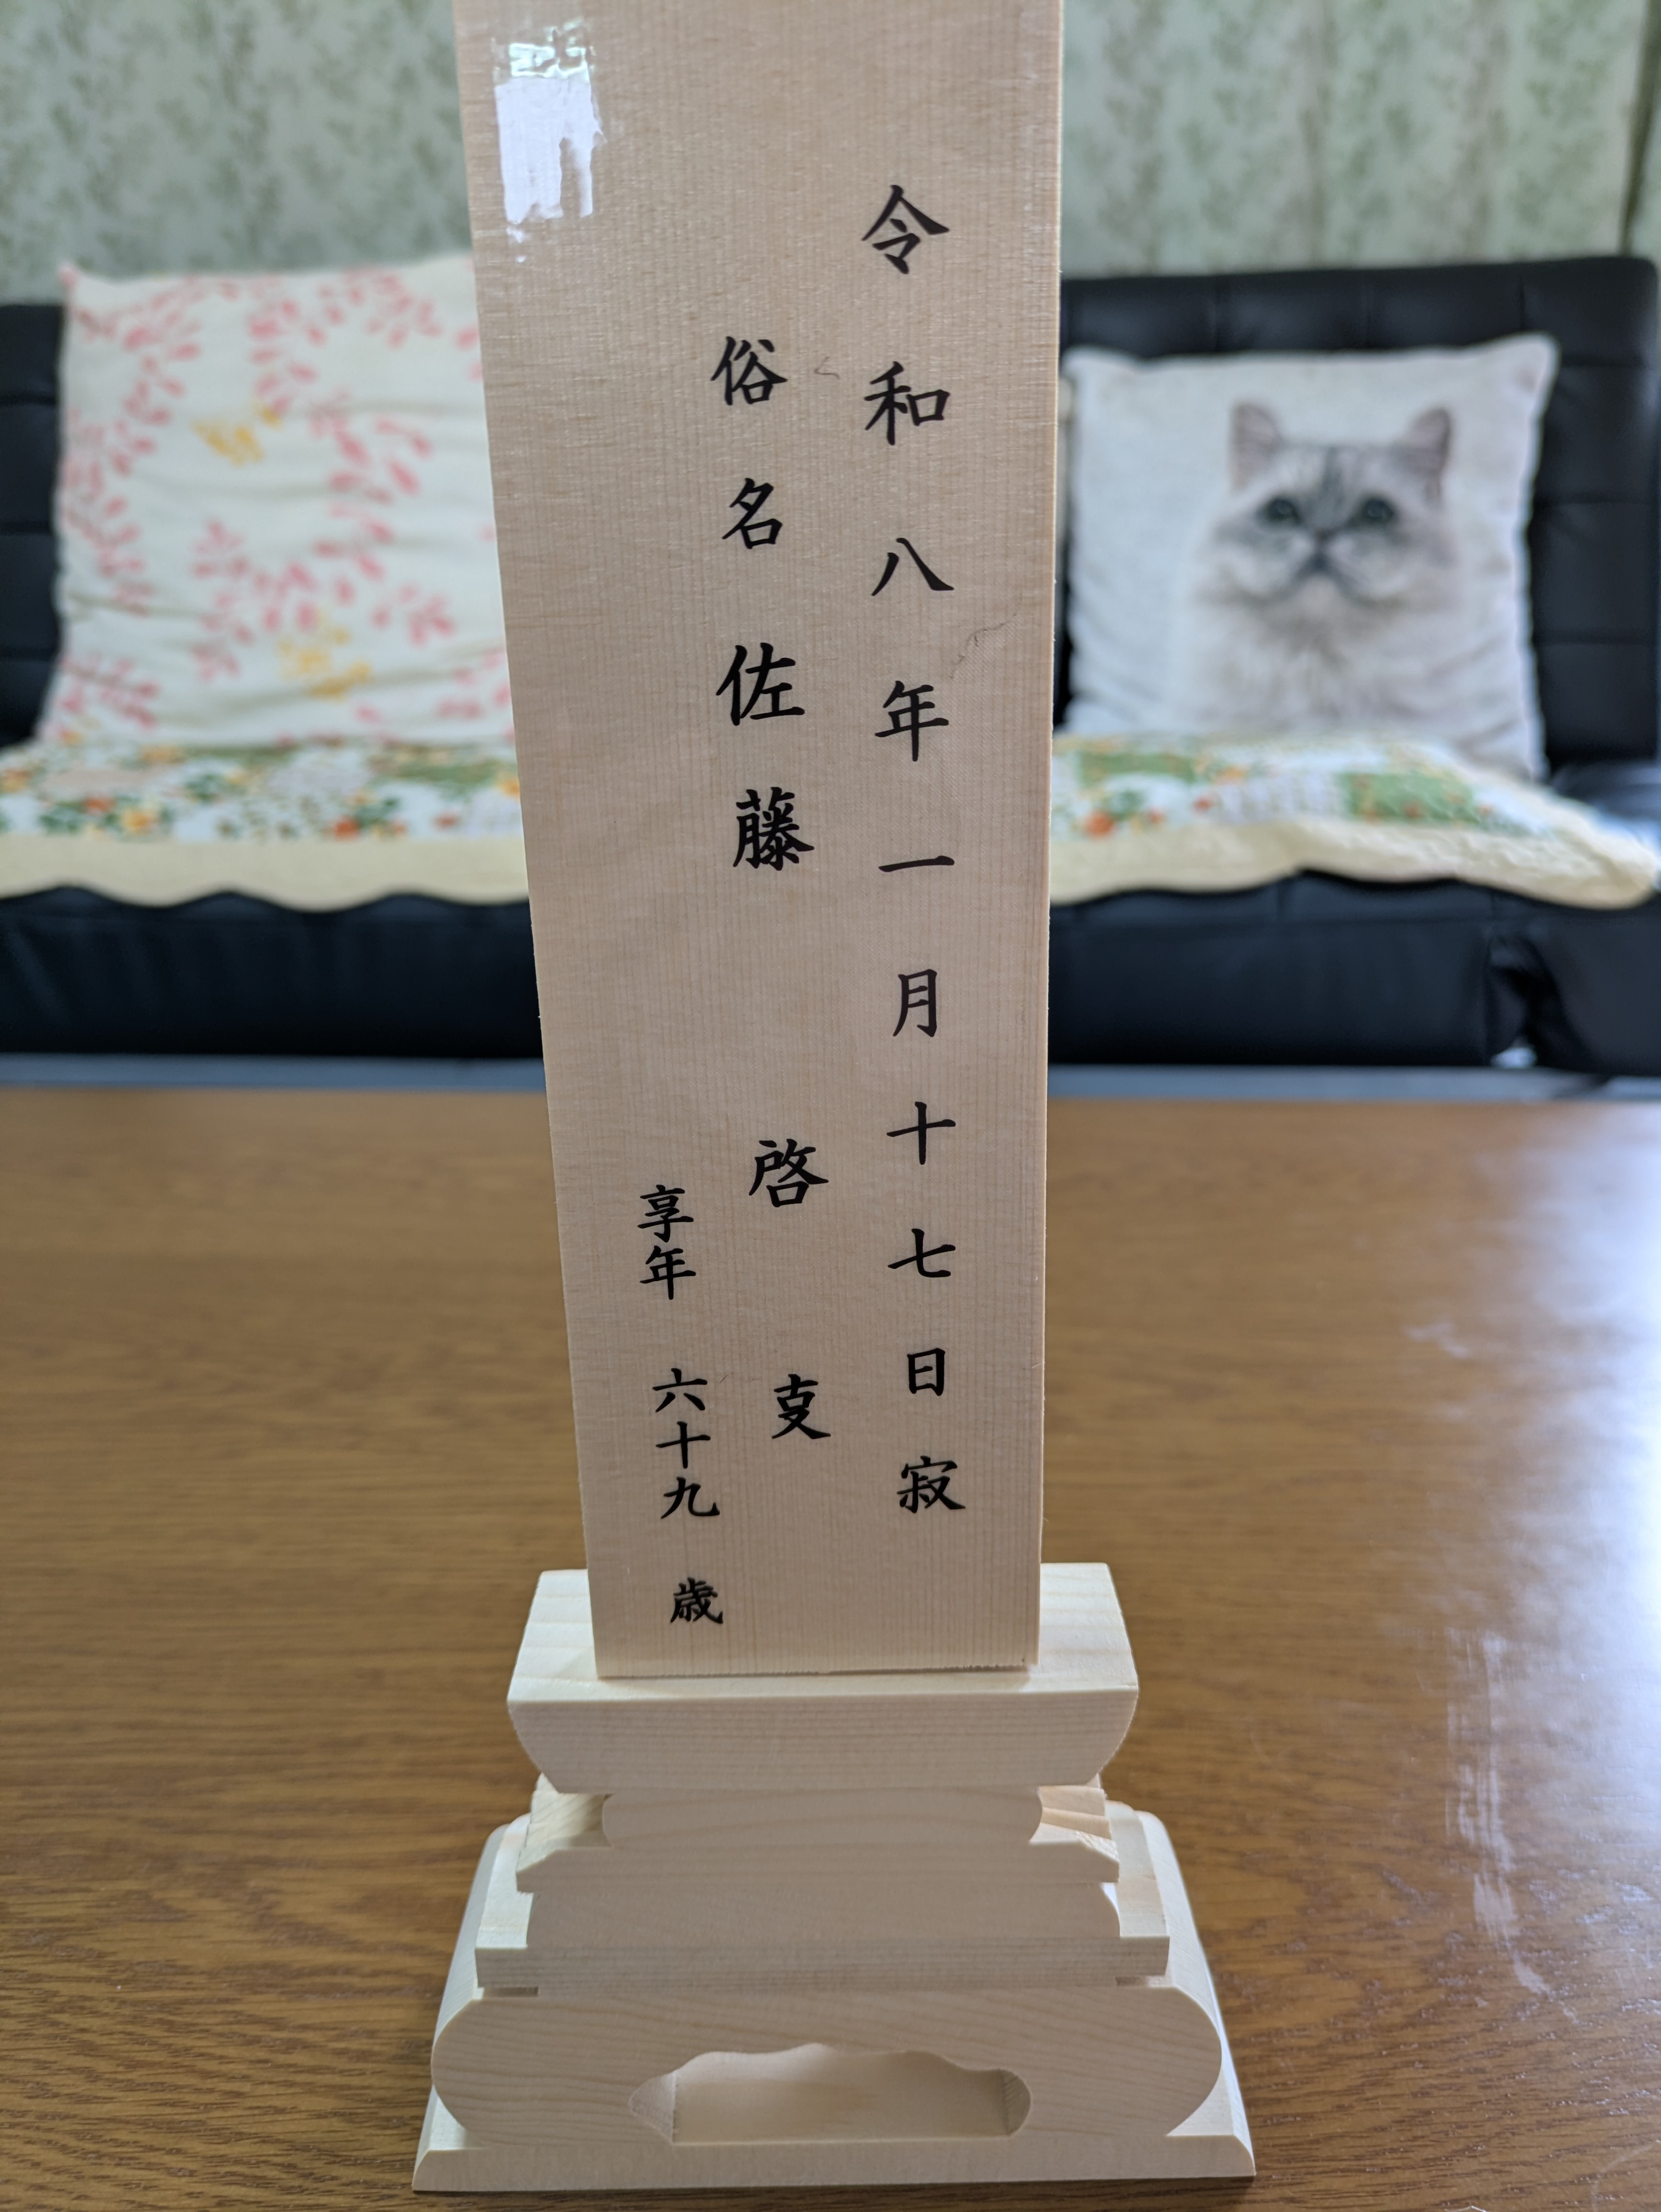 令和八年一月十七日寂
俗名佐藤 啓叓
享年 六十九 歳